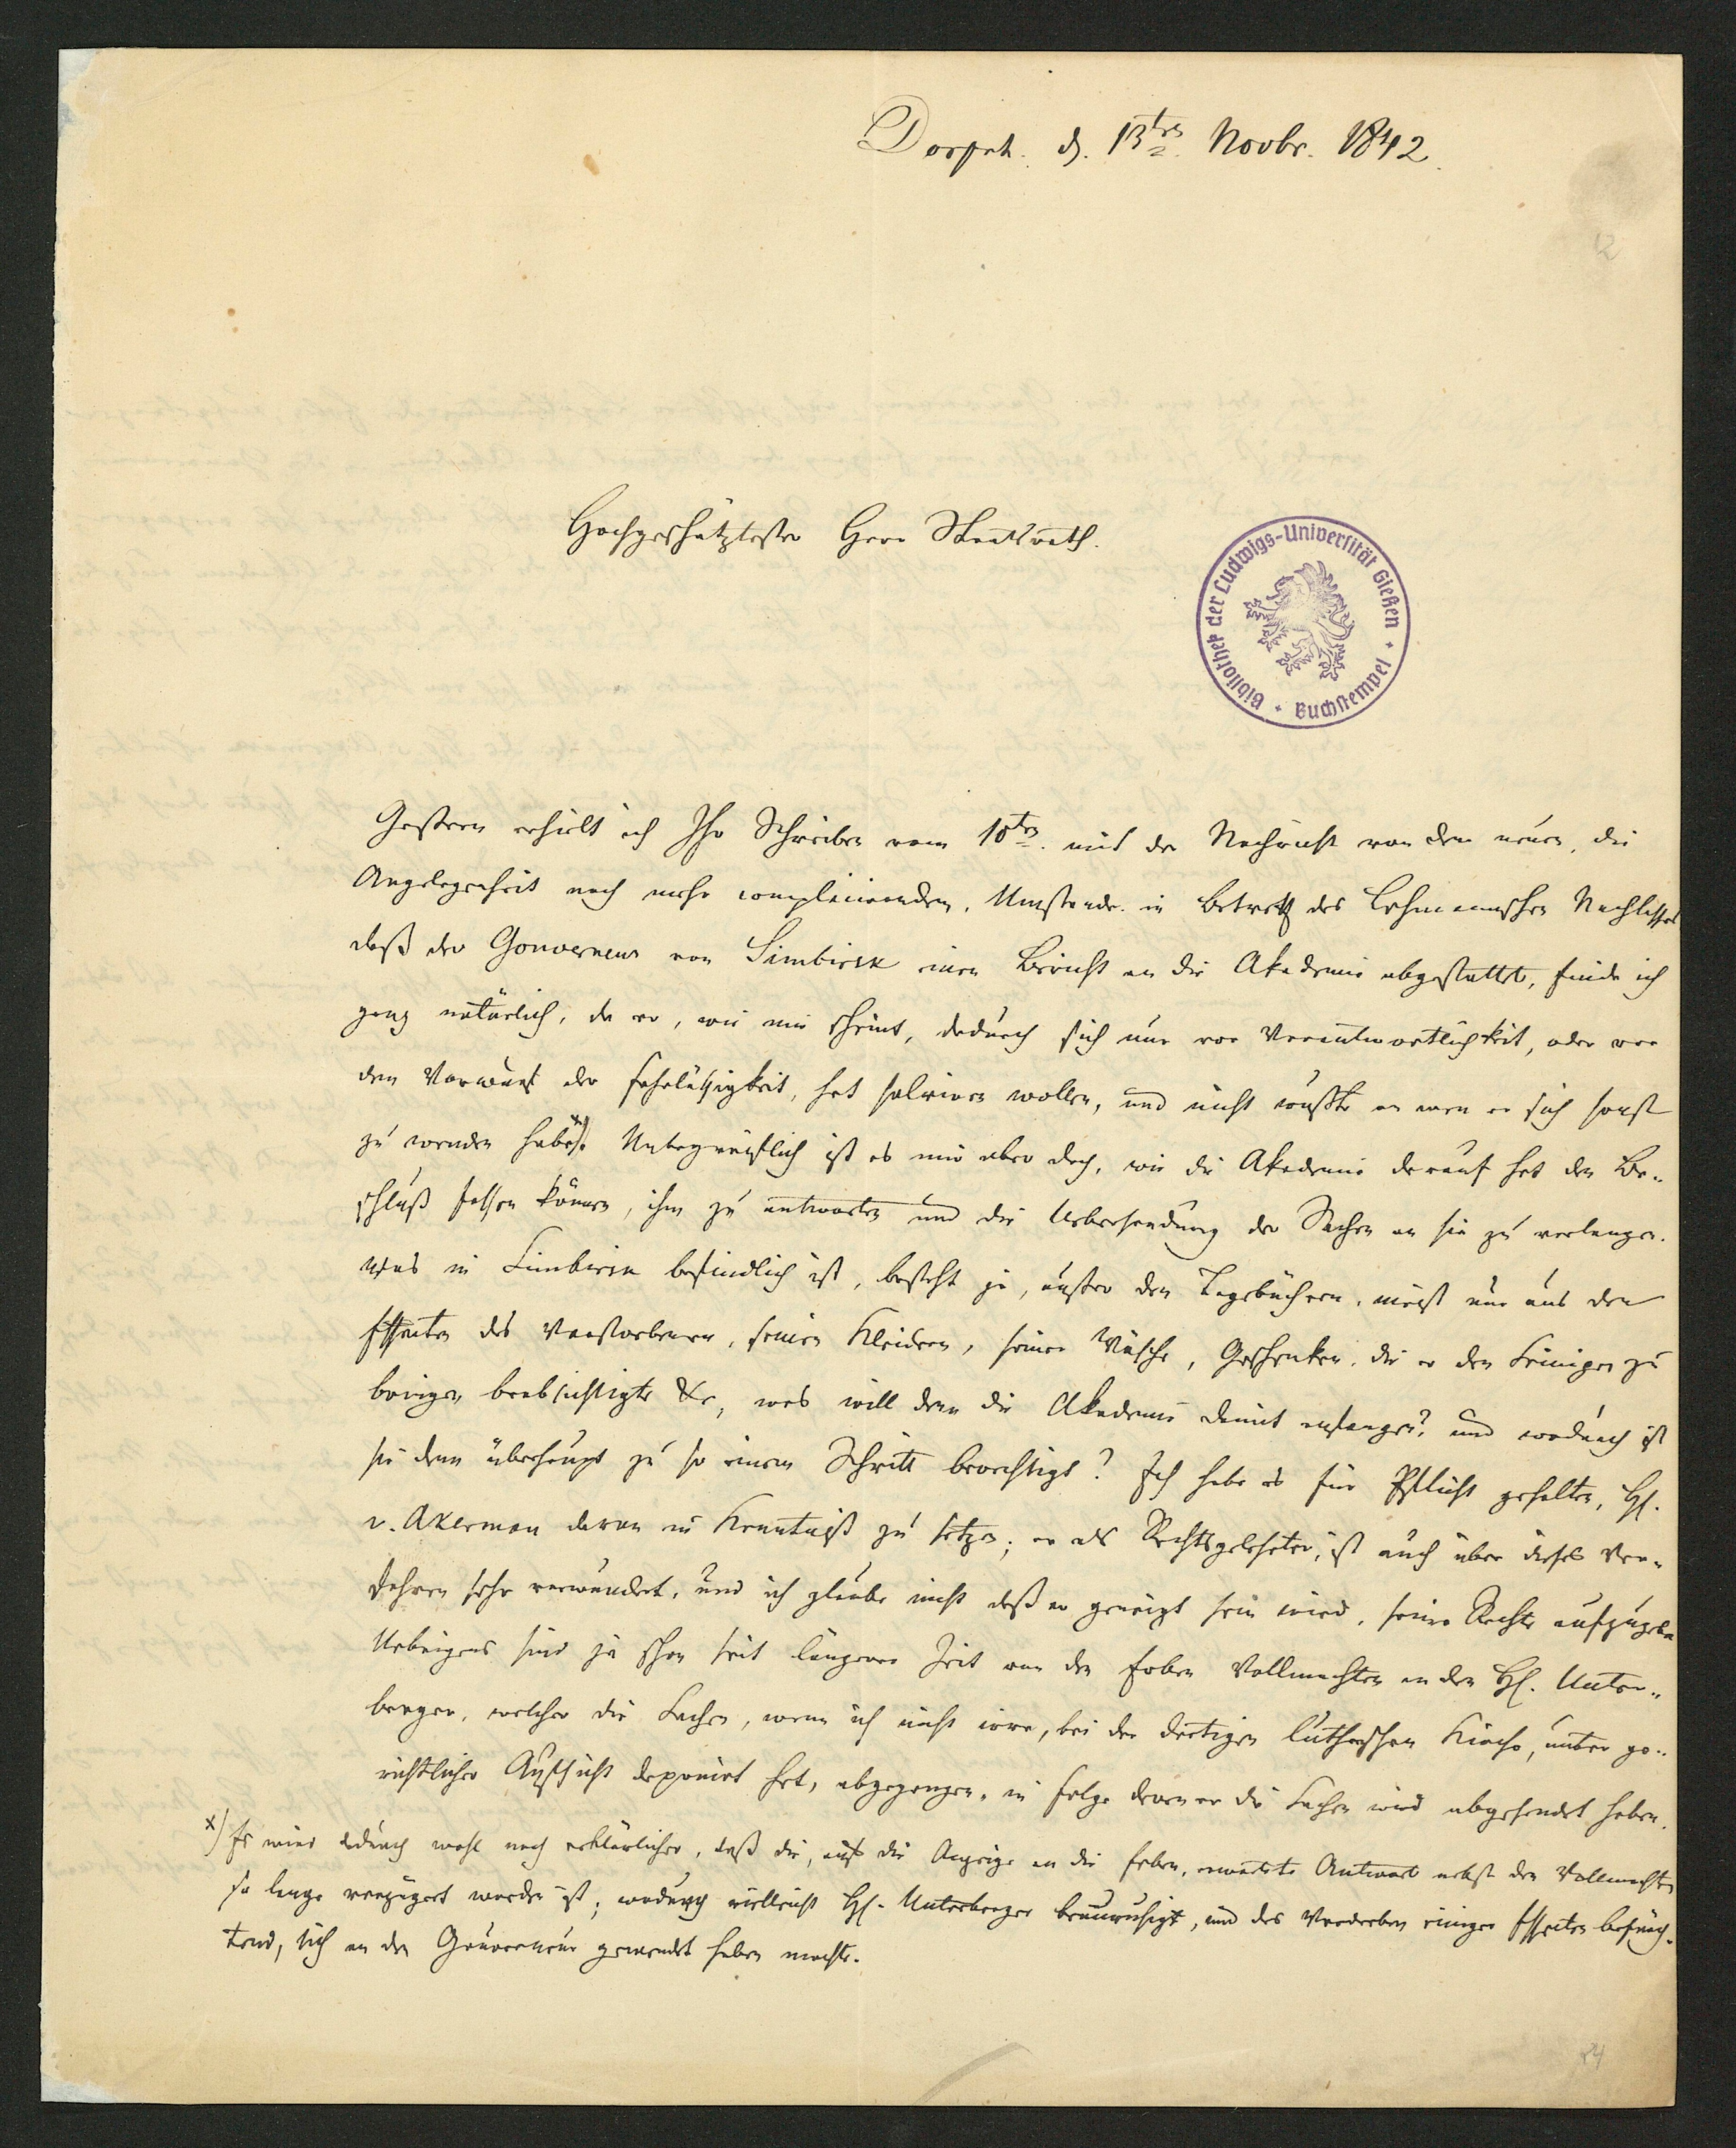 Dorpat. d. 13ten Novbr. 1842.
12
Hochgeschätztester Herr Staatsrath.
Bibliothek der Ludwigs-Universität Gießen + Buchstempel +
Gestern erhielt ich Ihr Schreiben vom 10ten. mit der Nachricht von dem neuen, die
Angelegenheit noch mehr complicirenden, Umstande in Betreff des Lehmannschen Nachlasses
daß der Gouverneur von Simbirsk einen Bericht an die Akademie abgestattet, finde ich
ganz natürlich, da er, wie mir scheint, dadurch sich nur vor Verantwortlichkeit, oder vor
dem Vorwurf der Fahrläßigkeit, hat salviren wollen, und nicht wußte an wen er sich sonst
zu wenden habe x). Unbegreiflich ist es mir aber doch, wie die Akademie darauf hat den Be-
schluß fassen können, ihm zu antworten und die Uebersendung der Sachen an sie zu verlangen.
Was in Simbirsk befindlich ist, besteht ja, außer den Tagebüchern, meist nur aus den
Effecten des Verstorbenen, seinen Kleidern, seiner Wäsche, Geschenken, die er den Seinigen zu
bringen beabsichtigte &c, was will denn die Akademie damit anfangen? und wodurch ist
sie denn überhaupt zu so einem Schritt berechtigt? Ich habe es für Pflicht gehalten, H.
v. Akerman davon in Kenntniß zu setzen; er als Rechtsgelehrter, ist auch über dieses Ver-
fahren sehr verwundert, und ich glaube nicht daß er geneigt sein wird, seine Rechte aufzugeben
Uebrigens sind ja schon seit längerer Zeit von den Erben Vollmachten an den H. Unter-
berger, welcher die Sachen, wenn ich nicht irre, bei der dortigen luthrischen Kirche, unter ge-
richtlicher Aufsicht deponirt hat, abgegangen, in Folge deren er die Sachen wird abgesendet haben.
x) Es wird dadurch wohl noch erklärlicher, daß die, auf die Anzeige an die Erben, erwartete Antwort nebst den Vollmachten
so lange verzögert worden ist; wodurch vielleicht H. Unterberger beunruhigt, und das Verderben einiger Effecten befürch-
tend, sich an den Gouverneur gewendet haben mochte.
24